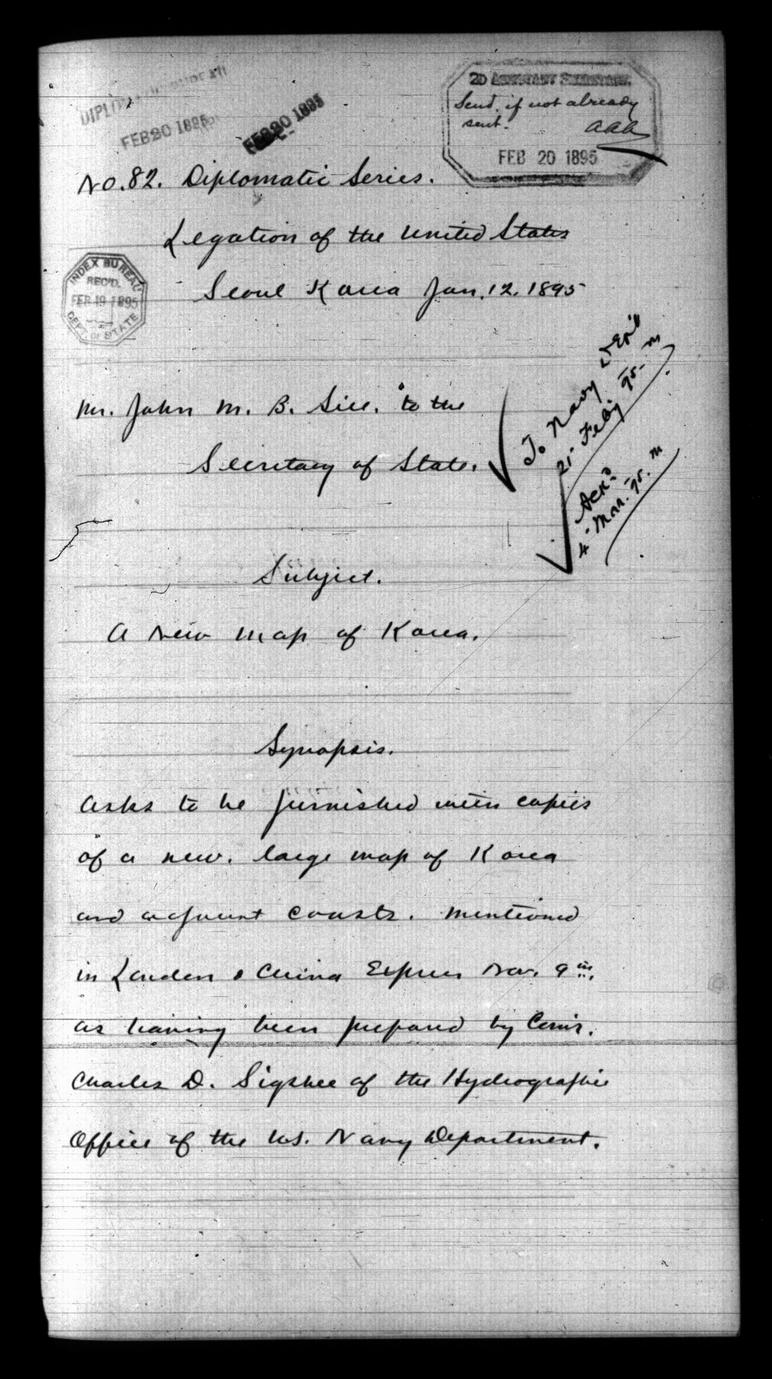 DIPLOMATIC BUREAU
FEB 20 1895
FEB 20 1895
2D ASSISTANT SECRETARY.
Send, if not already
sent. AAA
FEB 20 1895
No. 82. Diplomatic Series.
Legation of the United States
Seoul Korea Jan. 12. 1895
INDEX BUREAU
REC'D.
FEB 19 1895
DEPT. OF STATE
Mr. John M. B. Sill. to the
Secretary of State.
To Navy Dep't
21 Feb'y 95. M
Ack'd
4 Mar. 95. M
Subject.
A New Map of Korea.
Synopsis.
Asks to be furnished with copies
of a new. large map of Korea
and adjacent coasts. mentioned
in London & China Express Nov. 9th.
as having been prepared by Com'r.
Charles D. Sigsbee of the Hydrographic
Office of the U.S. Navy Department.